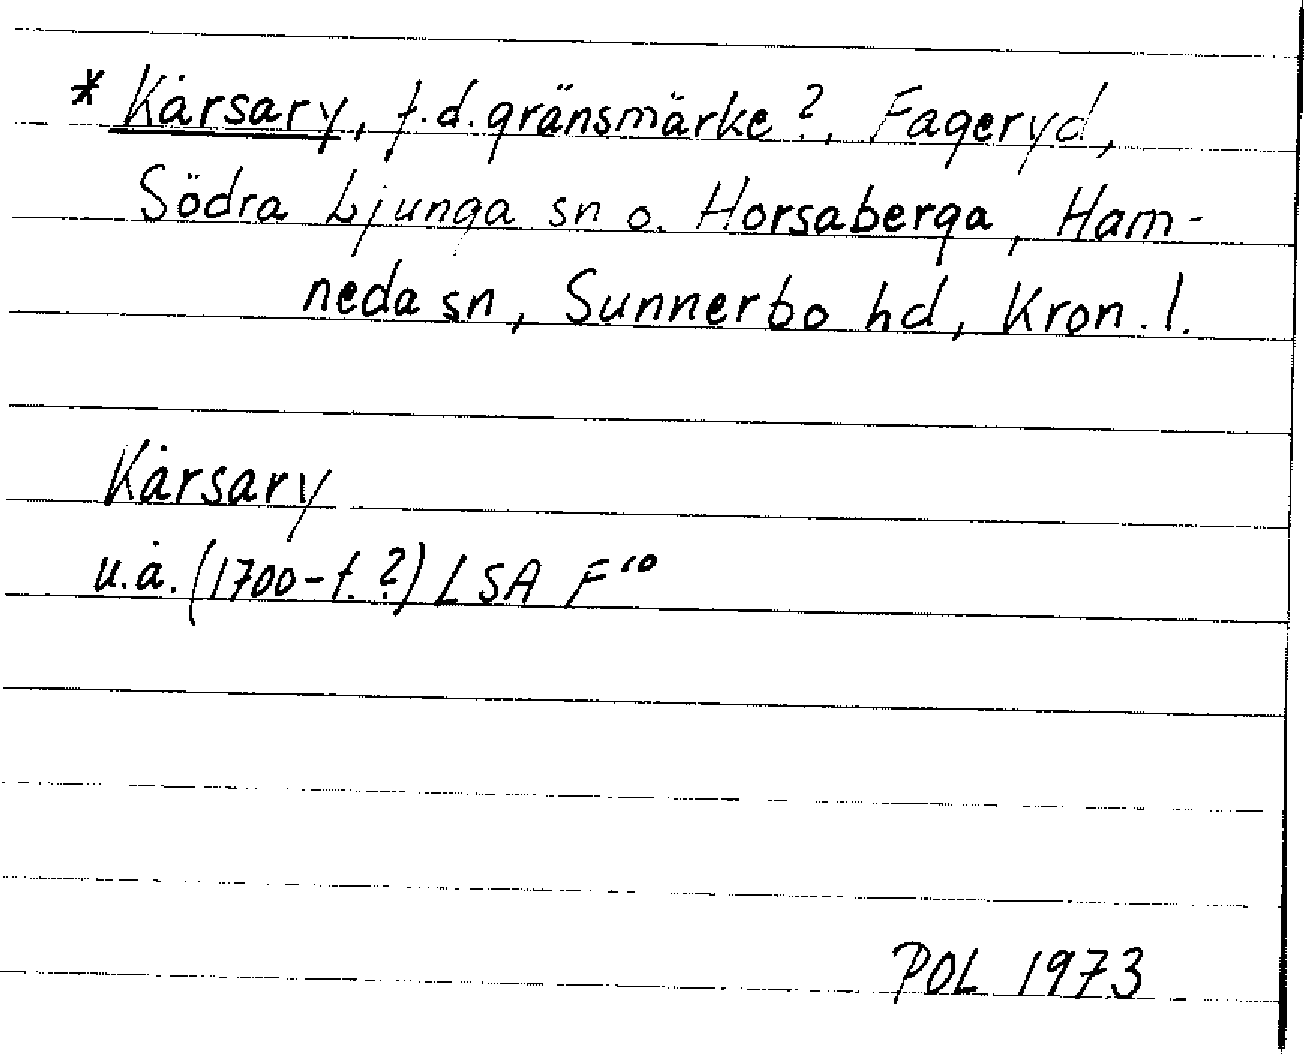 * Kårsary, f.d. gränsmärke?, Fageryd,
Södra Ljunga sn o. Horsaberga, Ham-
neda sn, Sunnerbo hd, Kron. l.
Kårsary
u.å. (1700-t.?) LSA F10
POL 1973